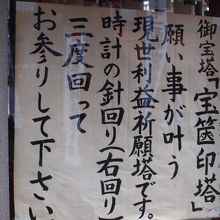 御宝塔「宝篋印塔」
願い事が叶う
現世利益祈願塔です。
時計の針回り(右回り)
三度回って
お参りして下さい